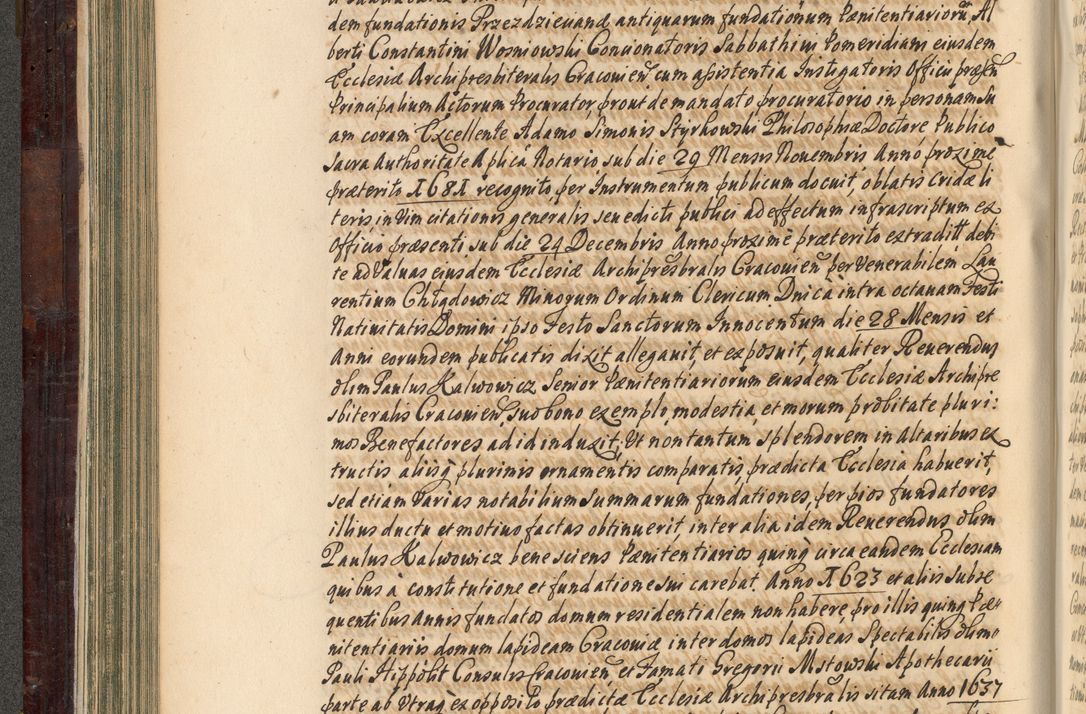 dem fundationis Przezdzieciana antiquarum fundationum Pænitentiariorũ, Al
berti Constantini Wosniowski Concionatoris Sabbathini Pomeridiani eiusdem
Ecclesiæ Archipresbiteralis Cracouien̄ cum assistentia Instigatoris Officii præsen̄
Principalium Actorum Procurator, prout de mandato procuratorio in personam su
am coram Excellente Adamo Simonis Styrkowski Philosophiæ Doctore Publico
Sacra Authoritate Aplicâ Notario sub die 29 Mensis Nouembris Anno proxime
præterito 1681 recognito, per Instrumentum publicum docuit, oblatis Cridæ li
teris, in vim citationis generalis seu edicti publici ad effectum infrascriptum ex
Officio præsenti, sub die 24 Decembris Anno proxime præterito extradit̃ debi
te ad Valuas eiusdem Ecclesiæ Archipresbr̃alis Cracouien̄ per Venerabilem Lau
rentium Chłądowicz Minorum Ordinum Clericum Dn̄icâ intra octauam Festi
Natiuitatis Domini ipso Festo Sanctorum Innocentum die 28 Mensis et
Anni eorundem publicatis dixit allegauit, et exposuit, qualiter Reuerendus
olim Paulus Kalwowicz Senior Pænitentiariorum eiusdem Ecclesiæ Archipre
sbiteralis Cracouien̄, suo bono exemplo, modestia, et morum probitate pluri:
mos Benefactores ad id induxit, Ut non tantum splendorem in Altaribus ex
tructis aliisq̨ plurimis ornamentis comparatis, prædicta Ecclesia habuerit,
sed etiam Varias notabilium Summarum fundationes, per pios fundatores
illius ductu et motiuo factas obtinuerit, inter alia idem Reuerendus olim
Paulus Kalwowicz bene sciens Pænitentiarios quinq̨ circa eandem Ecclesiam
quibus à constitutione et fundatione sui carebat Anno 1623 et aliis subse
quentibus annis fundatos domum residentialem non habere, pro illis quinq̨ Pæ
nitentiariis domum lapideam Cracouiæ inter domos lapideas Spectabilis olim
Pauli Hippolit Consulis Cracouien̄ et Famati Gregorii Mstowski Apothecarii
parte ab Utraq̨ ex opposito prædictæ Ecclesiæ Archipresbr̃alis sitam Anno 1637